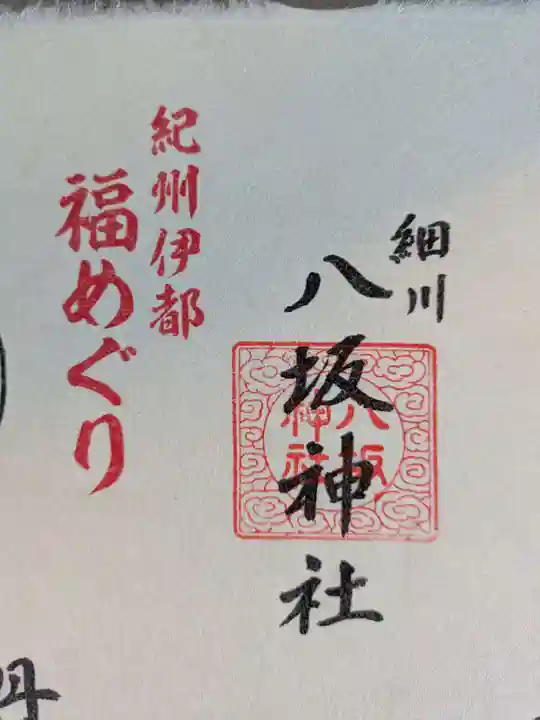 細川
八坂神社
八坂
神社
紀州伊都
福めぐり
丹